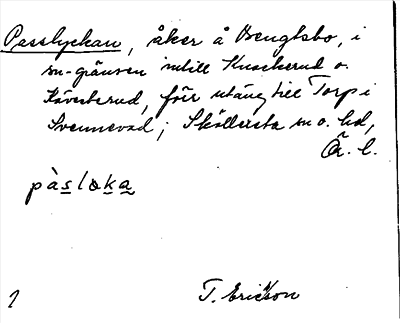 Passlyckan, åker å Bengtsbo, i
sn-gränsen intill Knackerud o.
Käversrud, förr utäng till Torp i
Svennevad; Sköllersta sn o. hd,
Ör. l.
pàsloka
T. Ericsson